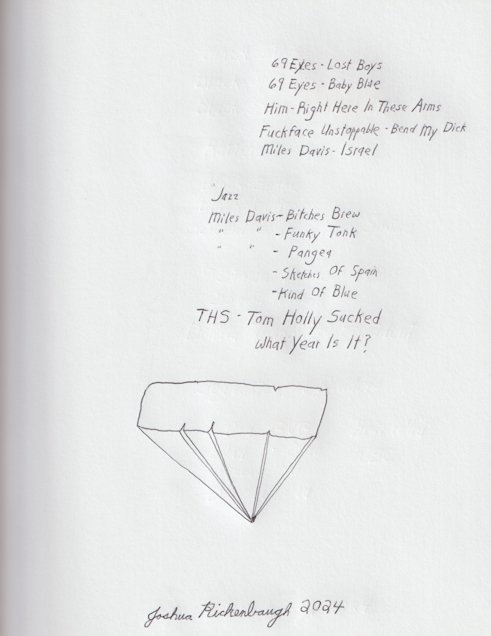 69 Eyes - Lost Boys
69 Eyes - Baby Blue
Him - Right Here In These Arms
Fuckface Unstoppable - Bend My Dick
Miles Davis - Israel
Jazz
Miles Davis - Bitches Brew
" " - Funky Tonk
" " - Pangea
- Sketches Of Spain
- Kind Of Blue
THS - Tom Holly Sucked
What Year Is It?
Joshua Rickenbaugh 2024